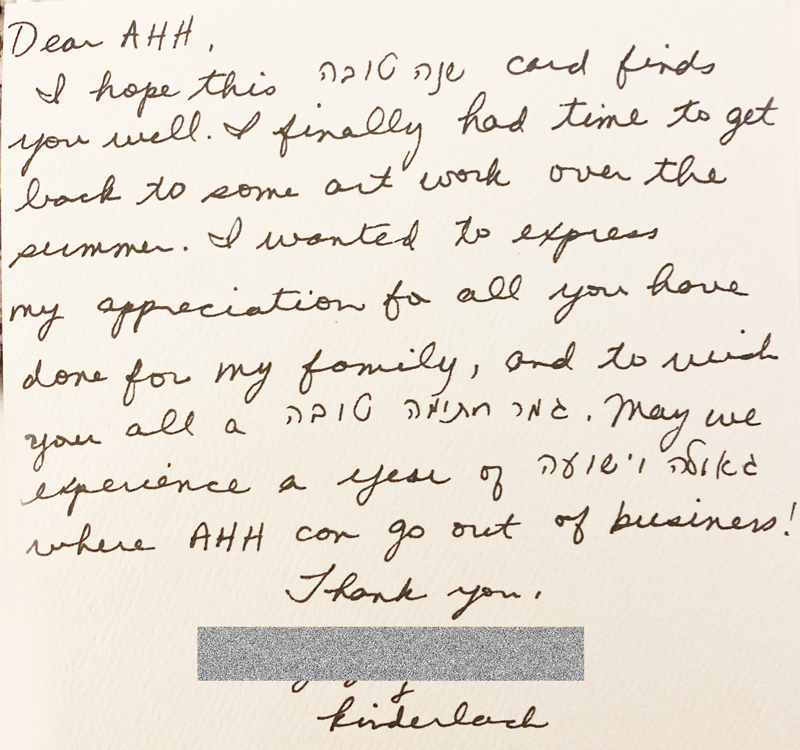 Dear AHH,
I hope this שנה טובה card finds
you well. I finally had time to get
back to some art work over the
summer. I wanted to express
my appreciation for all you have
done for my family, and to wish
you all a גמר חתימה טובה. May we
experience a year of גאולה וישועה
where AHH can go out of business!
Thank you.
kinderlach